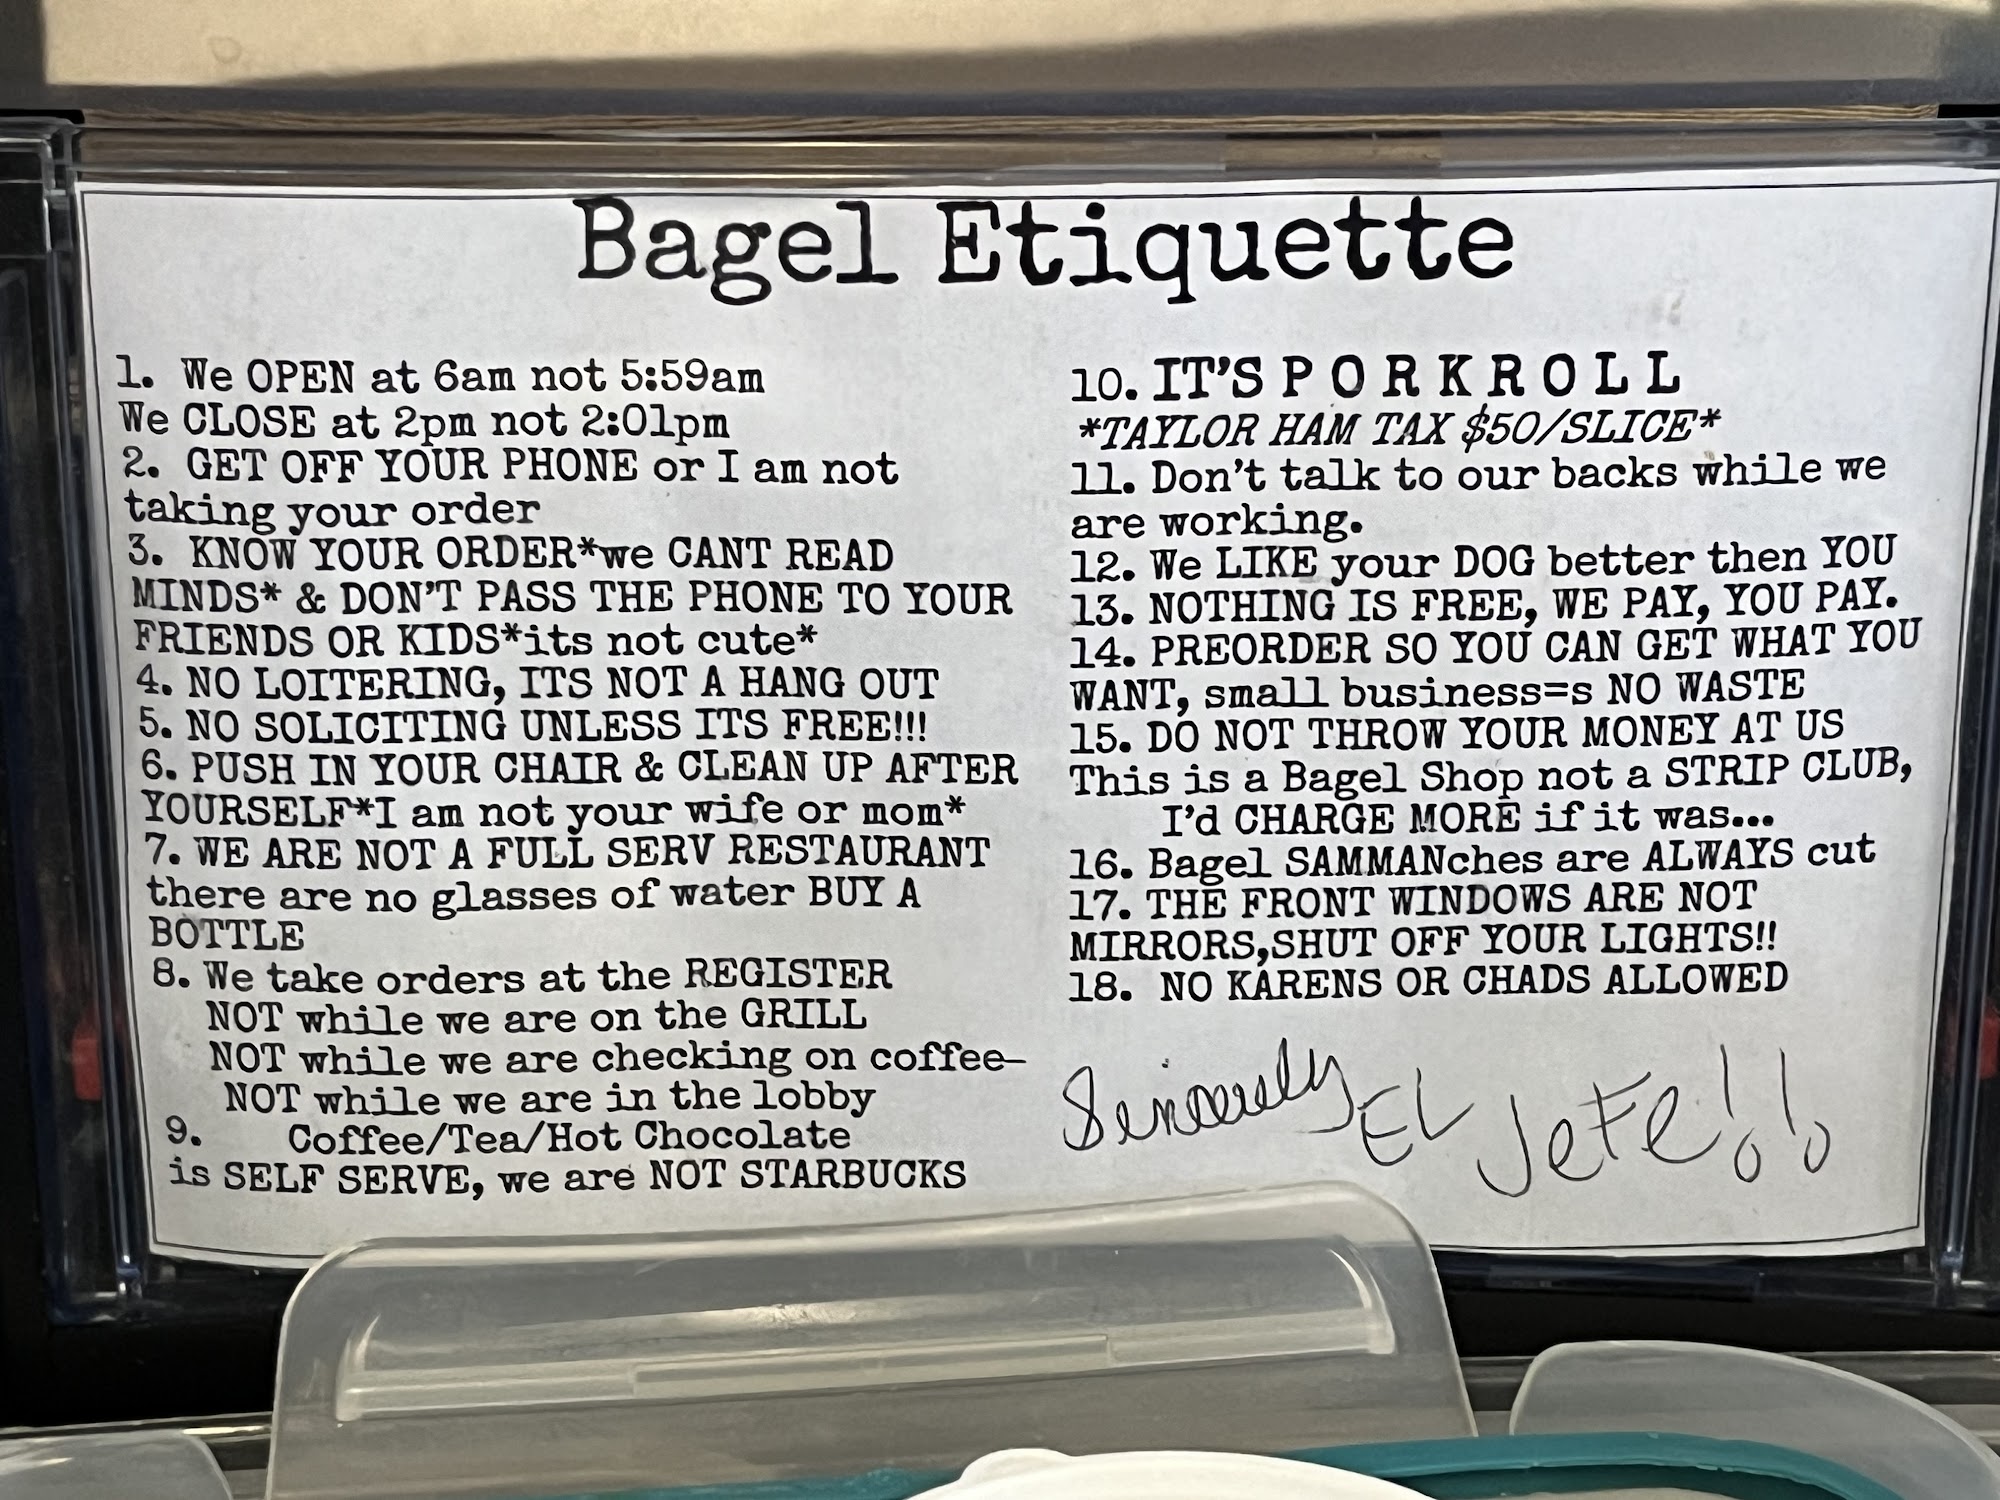 Bagel Etiquette
1. We OPEN at 6am not 5:59am
We CLOSE at 2pm not 2:01pm
2. GET OFF YOUR PHONE or I am not
taking your order
3. KNOW YOUR ORDER*we CANT READ
MINDS* & DON'T PASS THE PHONE TO YOUR
FRIENDS OR KIDS*its not cute*
4. NO LOITERING, ITS NOT A HANG OUT
5. NO SOLICITING UNLESS ITS FREE!!!
6. PUSH IN YOUR CHAIR & CLEAN UP AFTER
YOURSELF*I am not your wife or mom*
7. WE ARE NOT A FULL SERV RESTAURANT
there are no glasses of water BUY A
BOTTLE
8. We take orders at the REGISTER
NOT while we are on the GRILL
NOT while we are checking on coffee-
NOT while we are in the lobby
9. Coffee/Tea/Hot Chocolate
is SELF SERVE, we are NOT STARBUCKS
10. IT'S P O R K R O L L
*TAYLOR HAM TAX $50/SLICE*
11. Don't talk to our backs while we
are working.
12. We LIKE your DOG better then YOU
13. NOTHING IS FREE, WE PAY, YOU PAY.
14. PREORDER SO YOU CAN GET WHAT YOU
WANT, small business=s NO WASTE
15. DO NOT THROW YOUR MONEY AT US
This is a Bagel Shop not a STRIP CLUB,
I'd CHARGE MORE if it was...
16. Bagel SAMMANches are ALWAYS cut
17. THE FRONT WINDOWS ARE NOT
MIRRORS,SHUT OFF YOUR LIGHTS!!
18. NO KARENS OR CHADS ALLOWED
Sincerely EL JeFe!!